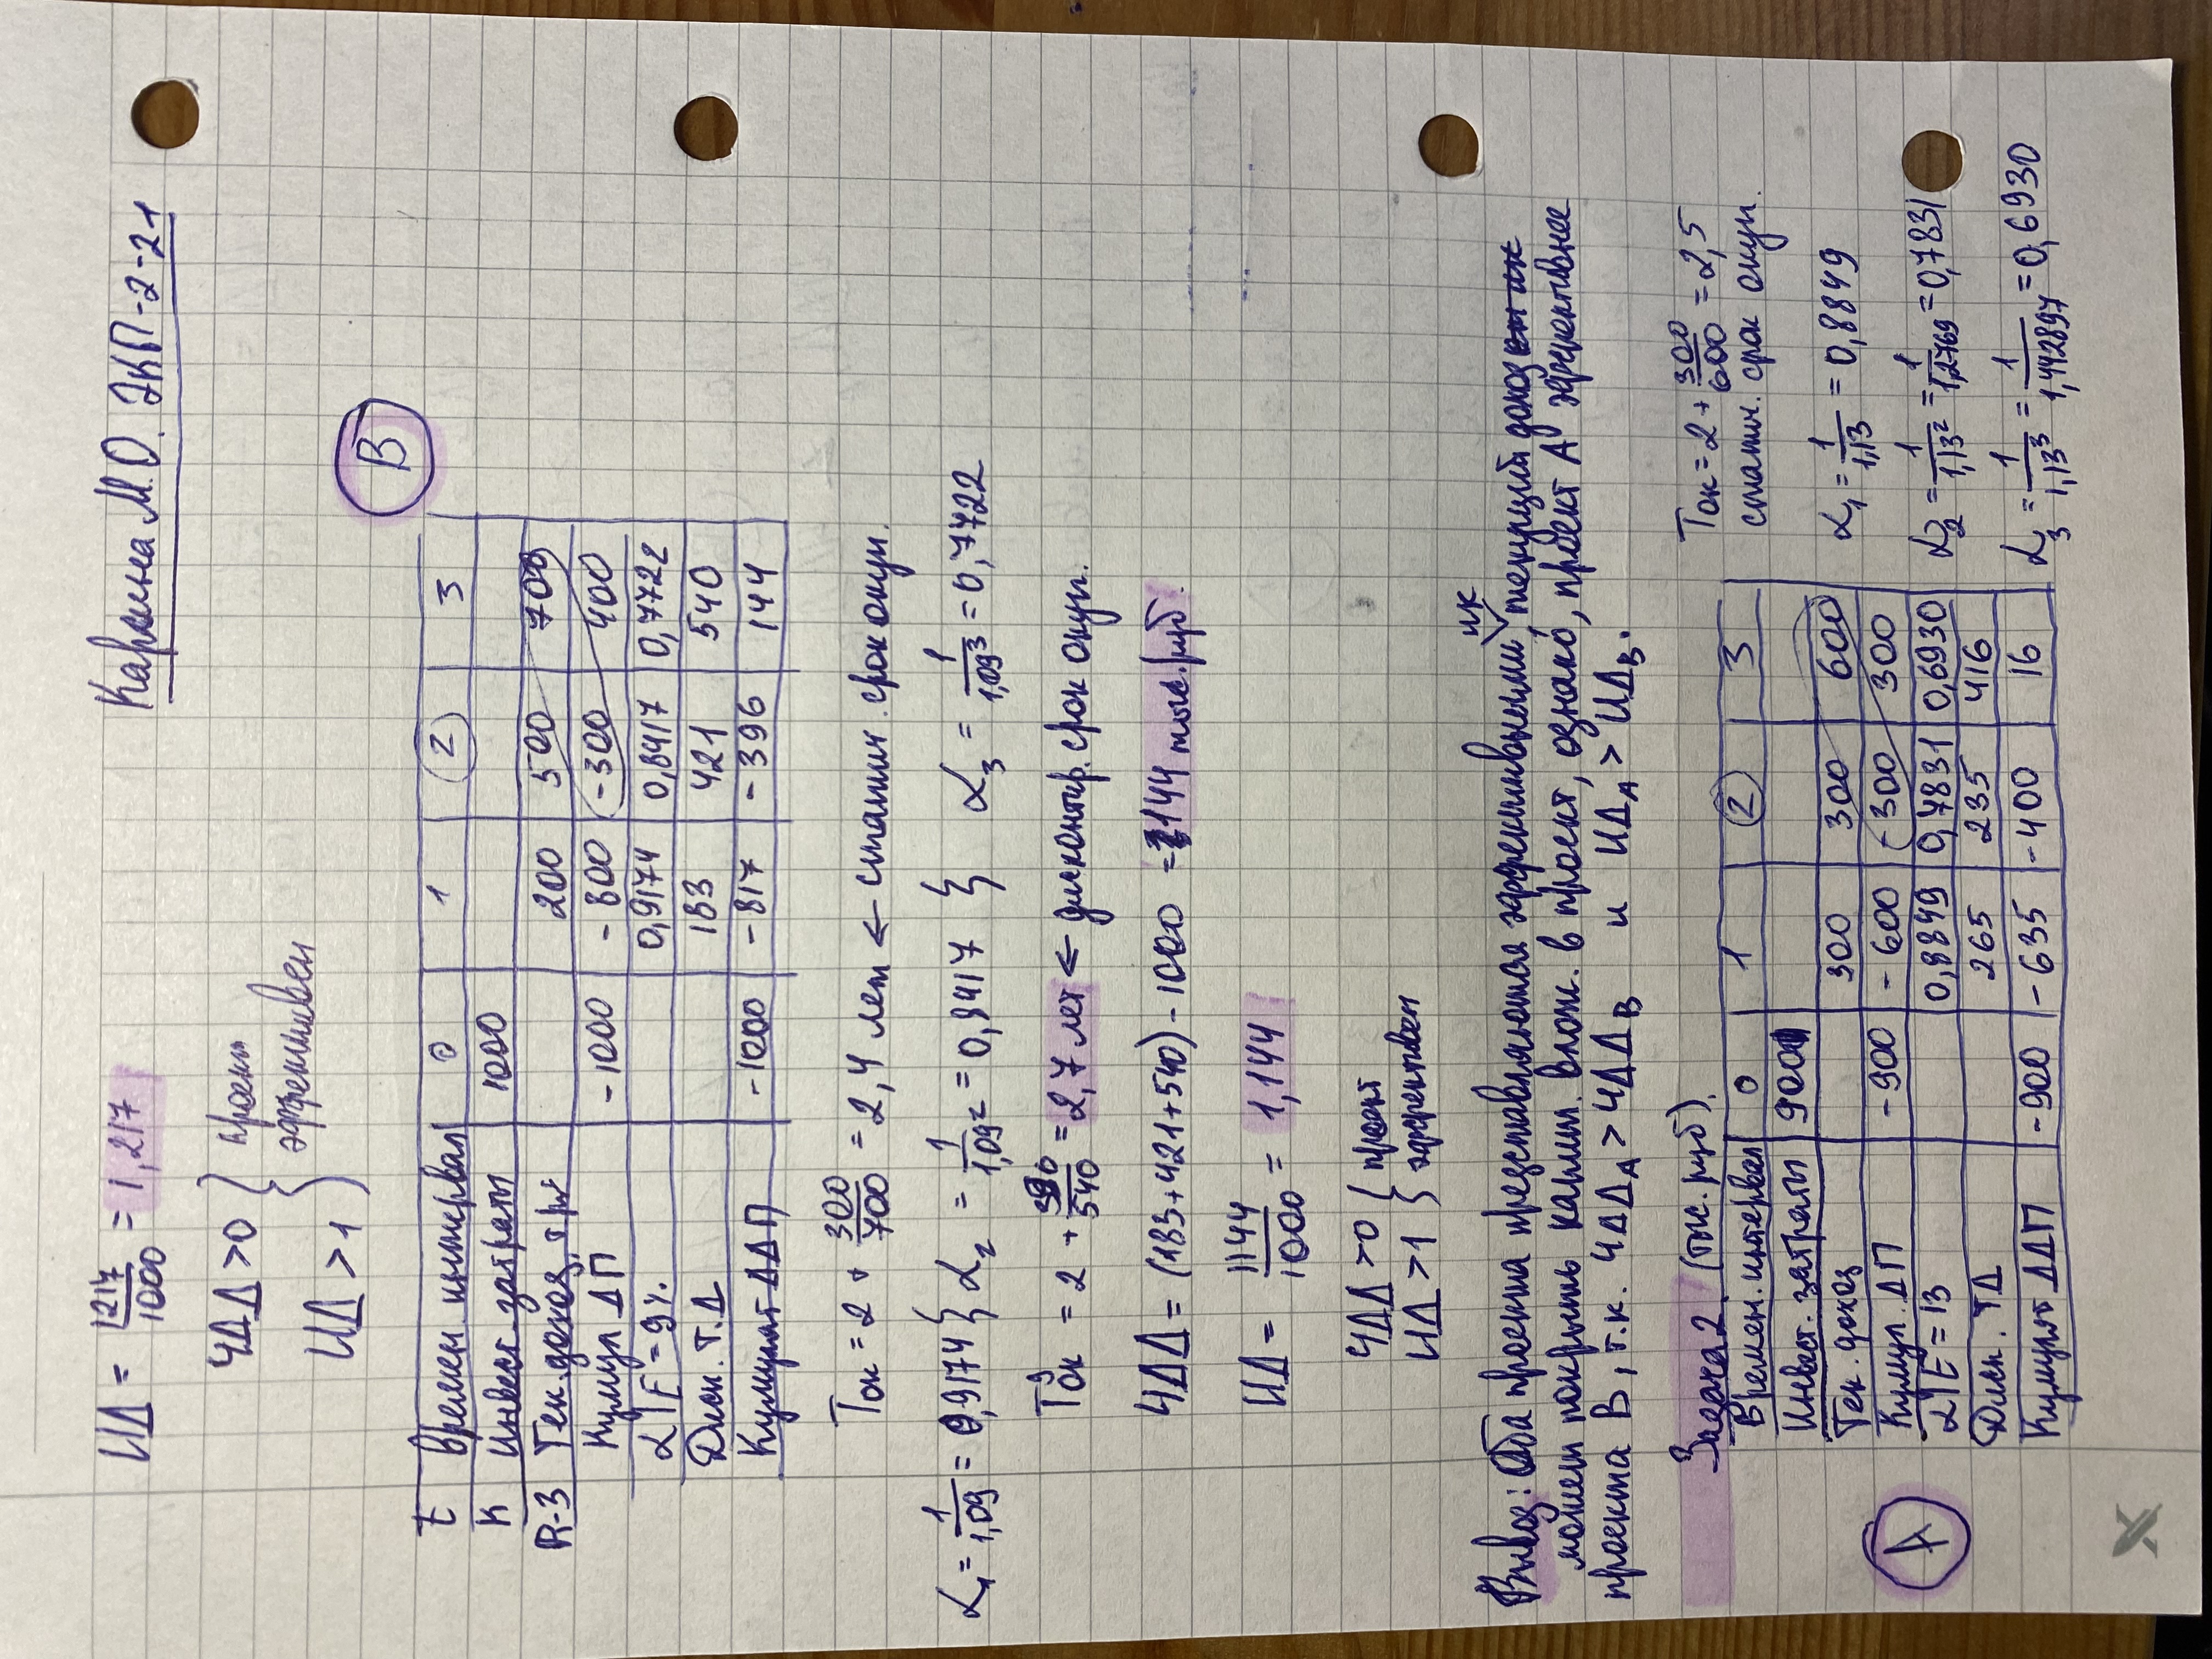 ИД = 1217/1000 = 1,217
Карсина М.О. ЭКП-2-21
ЧДД >0 } проект
ИД >1 } эффективен
B
t Времен. интервал 0 1 2 3
К Инвест. затраты 1000
R-З Тек. доход, т.р. 200 500 700
Кумул ДП -1000 -800 -300 400
α|E=9% 0,9174 0,8417 0,7722
Диск. Т.Д 183 421 540
Кумулят ДДП -1000 -817 -396 144
Ток = 2 + 300/700 = 2,4 лет ← статич. срок окуп.
α₁ = 1/1,09 = 0,9174 } α₂ = 1/1,09² = 0,8417 } α₃ = 1/1,09³ = 0,7722
Tᵍок = 2 + /540 = 2,7 лет ← дисконтир. срок окуп.
ЧДД = (183+421+540) - 1000 = 144 тыс. руб.
ИД = 1144/1000 = 1,144
ЧДД >0 } проект
ИД >1 } эффективен
Вывод: Оба проекта представляются эффективными, их текущий доход
может покрыть капит. влож. в проект, однако, проект А эффективнее
проекта В, т.к. ЧДДA > ЧДДB и ИДA > ИДB.
Задача 2. (тыс. руб).
Времен. интервал 0 1 2 3
Инвест. затраты 900
Тек. доход 300 300 600
Кумул. ДП -900 -600 -300 300
α|E = 13 0,8849 0,7831 0,6930
Диск. ТД 265 235 416
Кумулят ДДП -900 -635 -400 16
A
Ток = 2 + 300/600 = 2,5
статич. срок окуп.
α₁ = 1/1,13 = 0,8849
α₂ = 1/1,13² = 1/1,2769 = 0,7831
α₃ = 1/1,13³ = 1/1,442897 = 0,6930